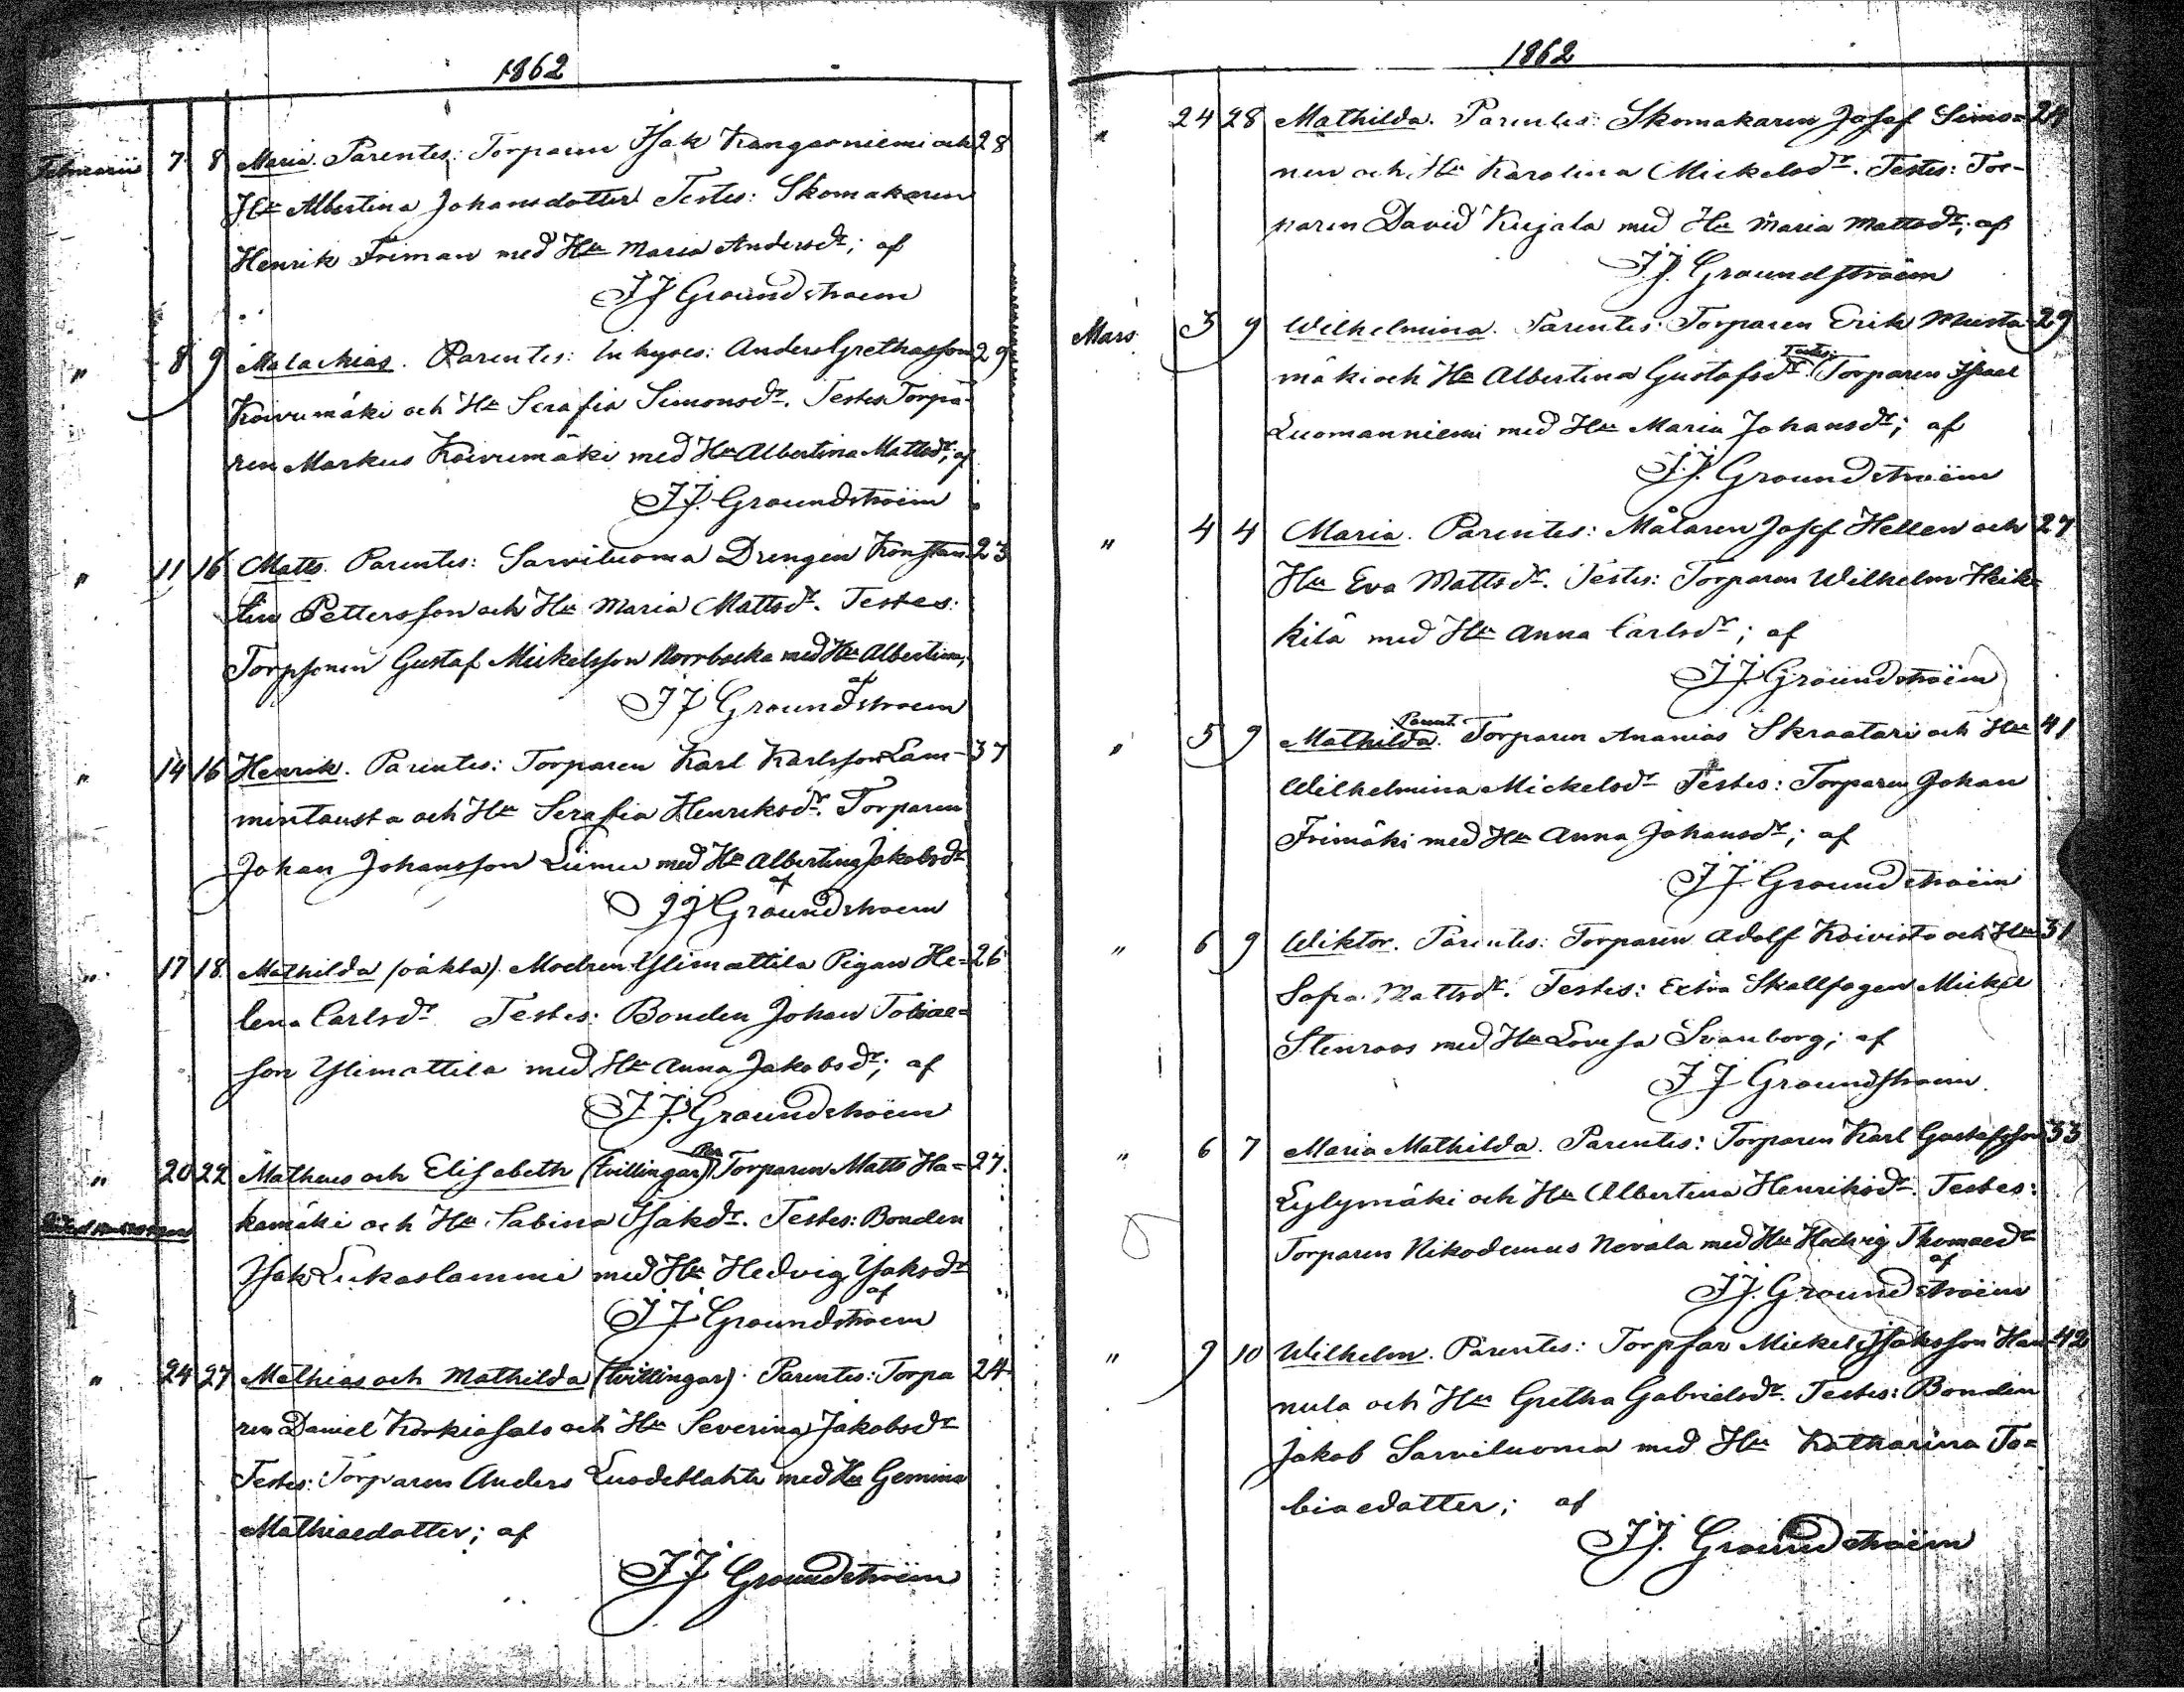 1862
Februarii 7 8 Maria. Parentes: Torparen Isak Kangasniemi och 28
Hu Albertina Johansdotter Testes: Skomakaren
Henrik Friman med Hu Maria Andersdr; af
J J Groundstroem
" 8 9 Malachias. Parentes: Inhyses: Anders Grethasson 29
Koivumäki och Hu Serafia Simonsdr. Testes Torpa-
ren Markus Koivumäki med Hu Albertina Mattsdr; af
J J. Groundstroëm
" 11 16 Matts. Parentes: Sarviluoma Drengen Konstan- 23
tin Pettersson och Hu Maria Mattsd. Testes:
Torpsonen Gustaf Mickelsson Norrbacka med Hu Albertina,
af
J J Groundstroem
" 14 16 Henrik. Parentes: Torparen Karl Karlsson Lam- 37
mintausta och Hu Serafia Henriksdr. Torparen
Johan Johansson Luimu med Hu Albertina Jakobsdr
af
J J Groundstroem
" 17 18 Mathilda (oäkta). Modren Ylimattila Pigan He= 26
lena Carlsdr Testes: Bonden Johan Tobiae=
son Ylimattila med Hu Anna Jakobsdr; af
J J. Groundstroëm
" 20 22 Matheus och Elisabeth (tvillingar) Par Torparen Matts Ha= 27.
kamäki och Hu Sabina Isaksdr. Testes: Bonden
Isak Lukaslammi med Hu Hedvig Isaksdr
af
J J Groundstroem
" 24 27 Mathias och Mathilda (tvillingar). Parentes: Torpa 24
ren Daniel Korkiasalo och Hu Severina Jakobsdr
Testes: Torparen Anders Luodeslahti med Hu Gemina
Mathiaedotter; af
J J Groundstroëm
1862
" 24 28 Mathilda. Parentes: Skomakaren Josef Simo=
nen och Hu Karolina Mickelsdr. Testes: Tor-
paren David Kujala med Hu Maria Mattsdr; af
J J. Groundstroëm
Mars 3 9 Wilhelmina. Parentes: Torparen Erik Musta- 29
mäki och Hu Albertina Gustafsdr. Testes: Torparen Israel
Luomanniemi med Hu Maria Johansdr; af
J J. Groundstroëm
" 4 4 Maria. Parentes: Målaren Josef Hellen och 27
Hu Eva Mattsdr. Testes: Torparen Wilhelm Heik=
kilä med Hu Anna Carlsdr; af
J J Groundstroëm
" 5 9 Mathilda. Parent. Torparen Ananias Skraatari och Hu 41
Wilhelmina Mickelsdr Testes: Torparen Johan
Frimäki med Hu Anna Johansdr; af
J J. Groundstroëm
" 6 9 Wiktor. Parentes: Torparen Adolf Koivisto och Hu 31
Sofia Mattsdr. Testes: Extra Skallfogen Mickel
Stenroos med Hu Lovisa Svanborg; af
J J Groundstroëm.
" 6 7 Maria Mathilda. Parentes: Torparen Karl Gustafsson 33
Lylymäki och Hu Albertina Henriksdr. Testes:
Torparen Nikodemus Nevala med Hu Hedvig Thomaedr
af
J J. Groundstroëm
" 9 10 Wilhelm. Parentes: Torpfar Mickel Isaksson Han- 42
nula och Hu Gretha Gabrielsdr. Testes: Bonden
Jakob Sarviluoma med Hu Katharina To=
biaedotter; af
J J. Groundstroëm